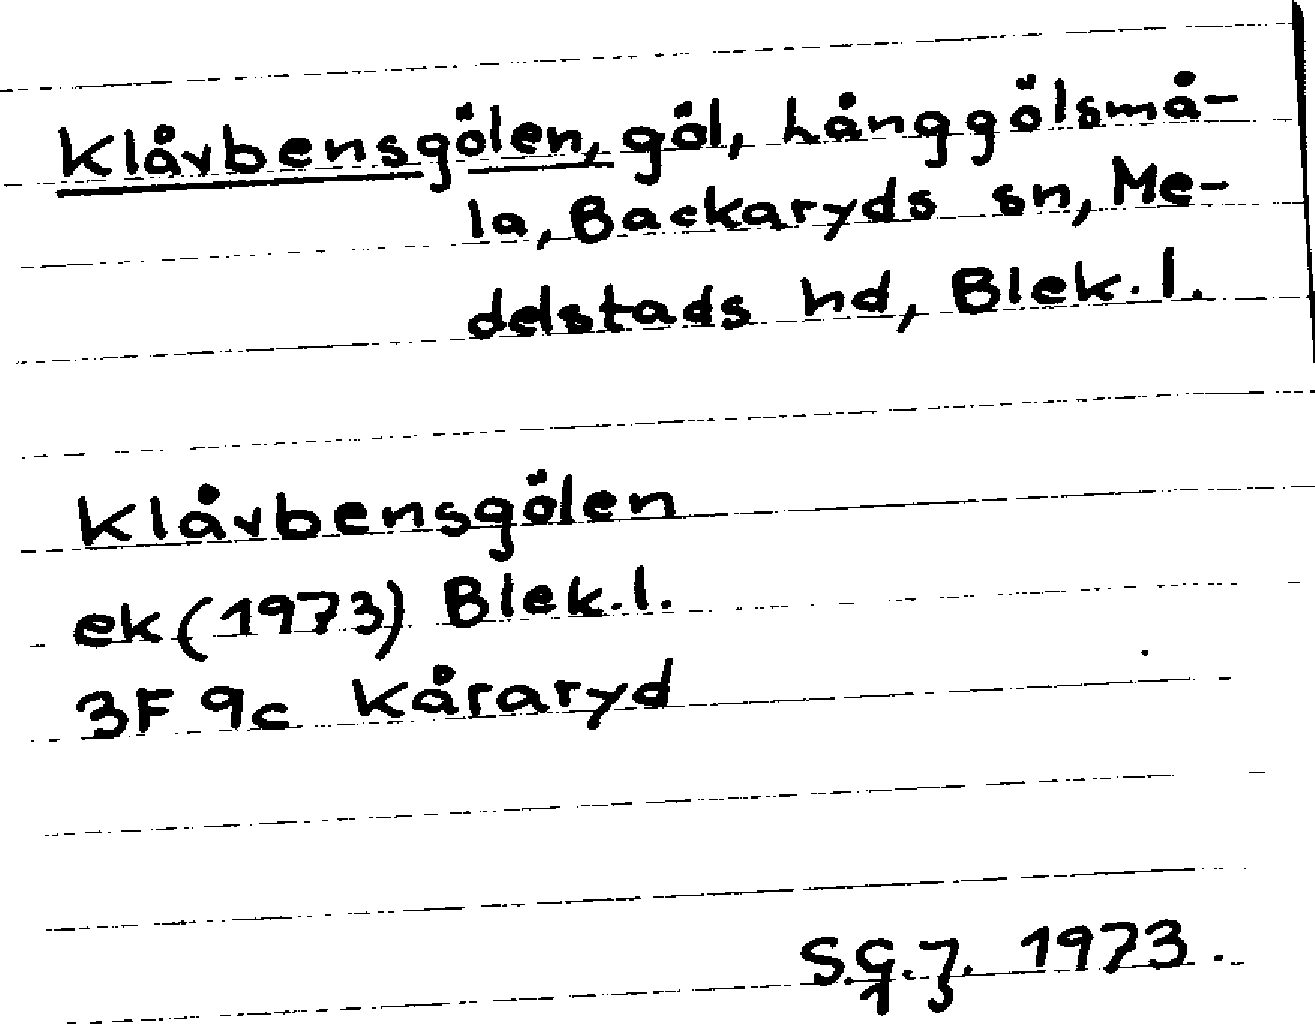 Klåvbensgölen, göl, Långgölsmå-
la, Backaryds sn, Me-
delstads hd, Blek. l.
Klåvbensgölen
ek (1973) Blek. l.
3F 9c Kåraryd
S.G.J. 1973.